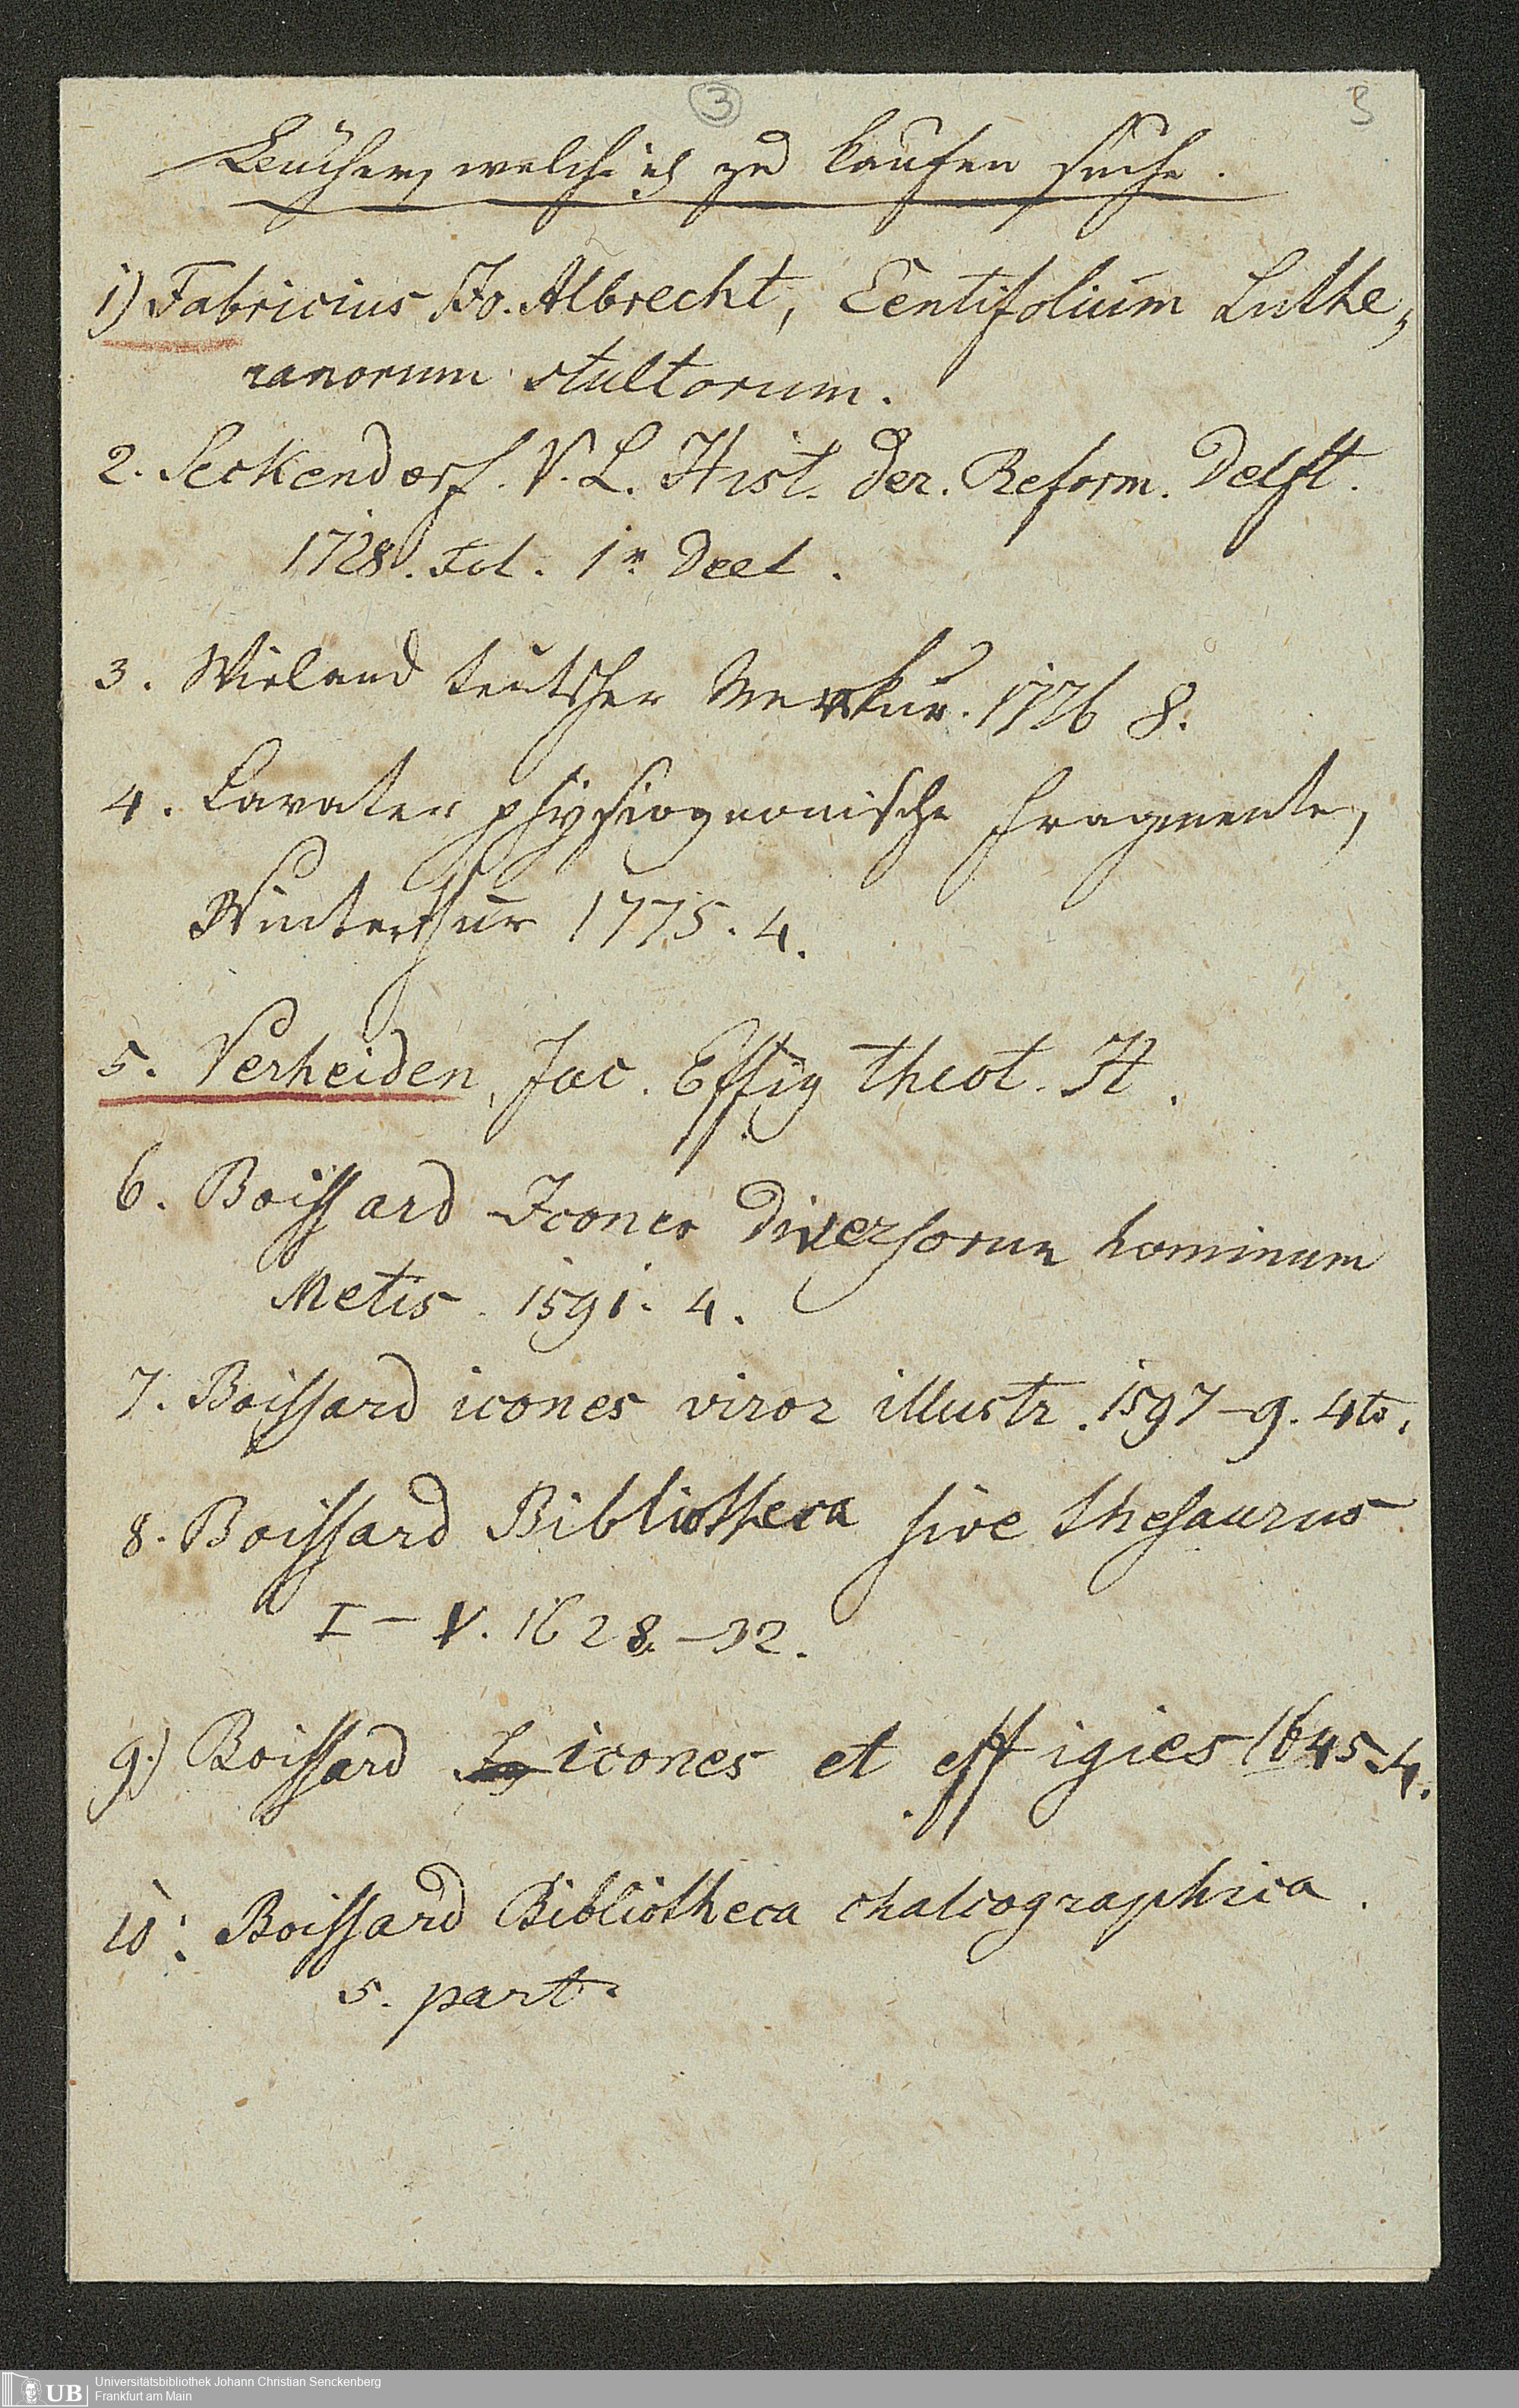 3
3
Bücher, welche ich zu kaufen suche.
1) Fabricius Jo. Albrecht, Centifolium Luthe,
ranorum stultorum.
2. Seckendorf. V. L. Hist. der. Reform. Delft.
1728. Fol. 1r Deel.
3. Wieland teutscher Merkur. 1776 8.
4. Lavater physiognomische Fragmente,
Winterthur 1775. 4.
5. Verheiden, Jac. Effig theol. H.
6. Boissard Icones diversorum hominum
Metis. 1591. 4.
7. Boissard icones viror illustr. 1597-9. 4to.
8. Boissard Bibliotheca sive thesaurus
I-V. 1628-32.
9.) Boissard icones et effigies 1645. 4.
10. Boissard Bibliotheca chalcographica.
5. part.
UB Universitätsbibliothek Johann Christian Senckenberg
Frankfurt am Main